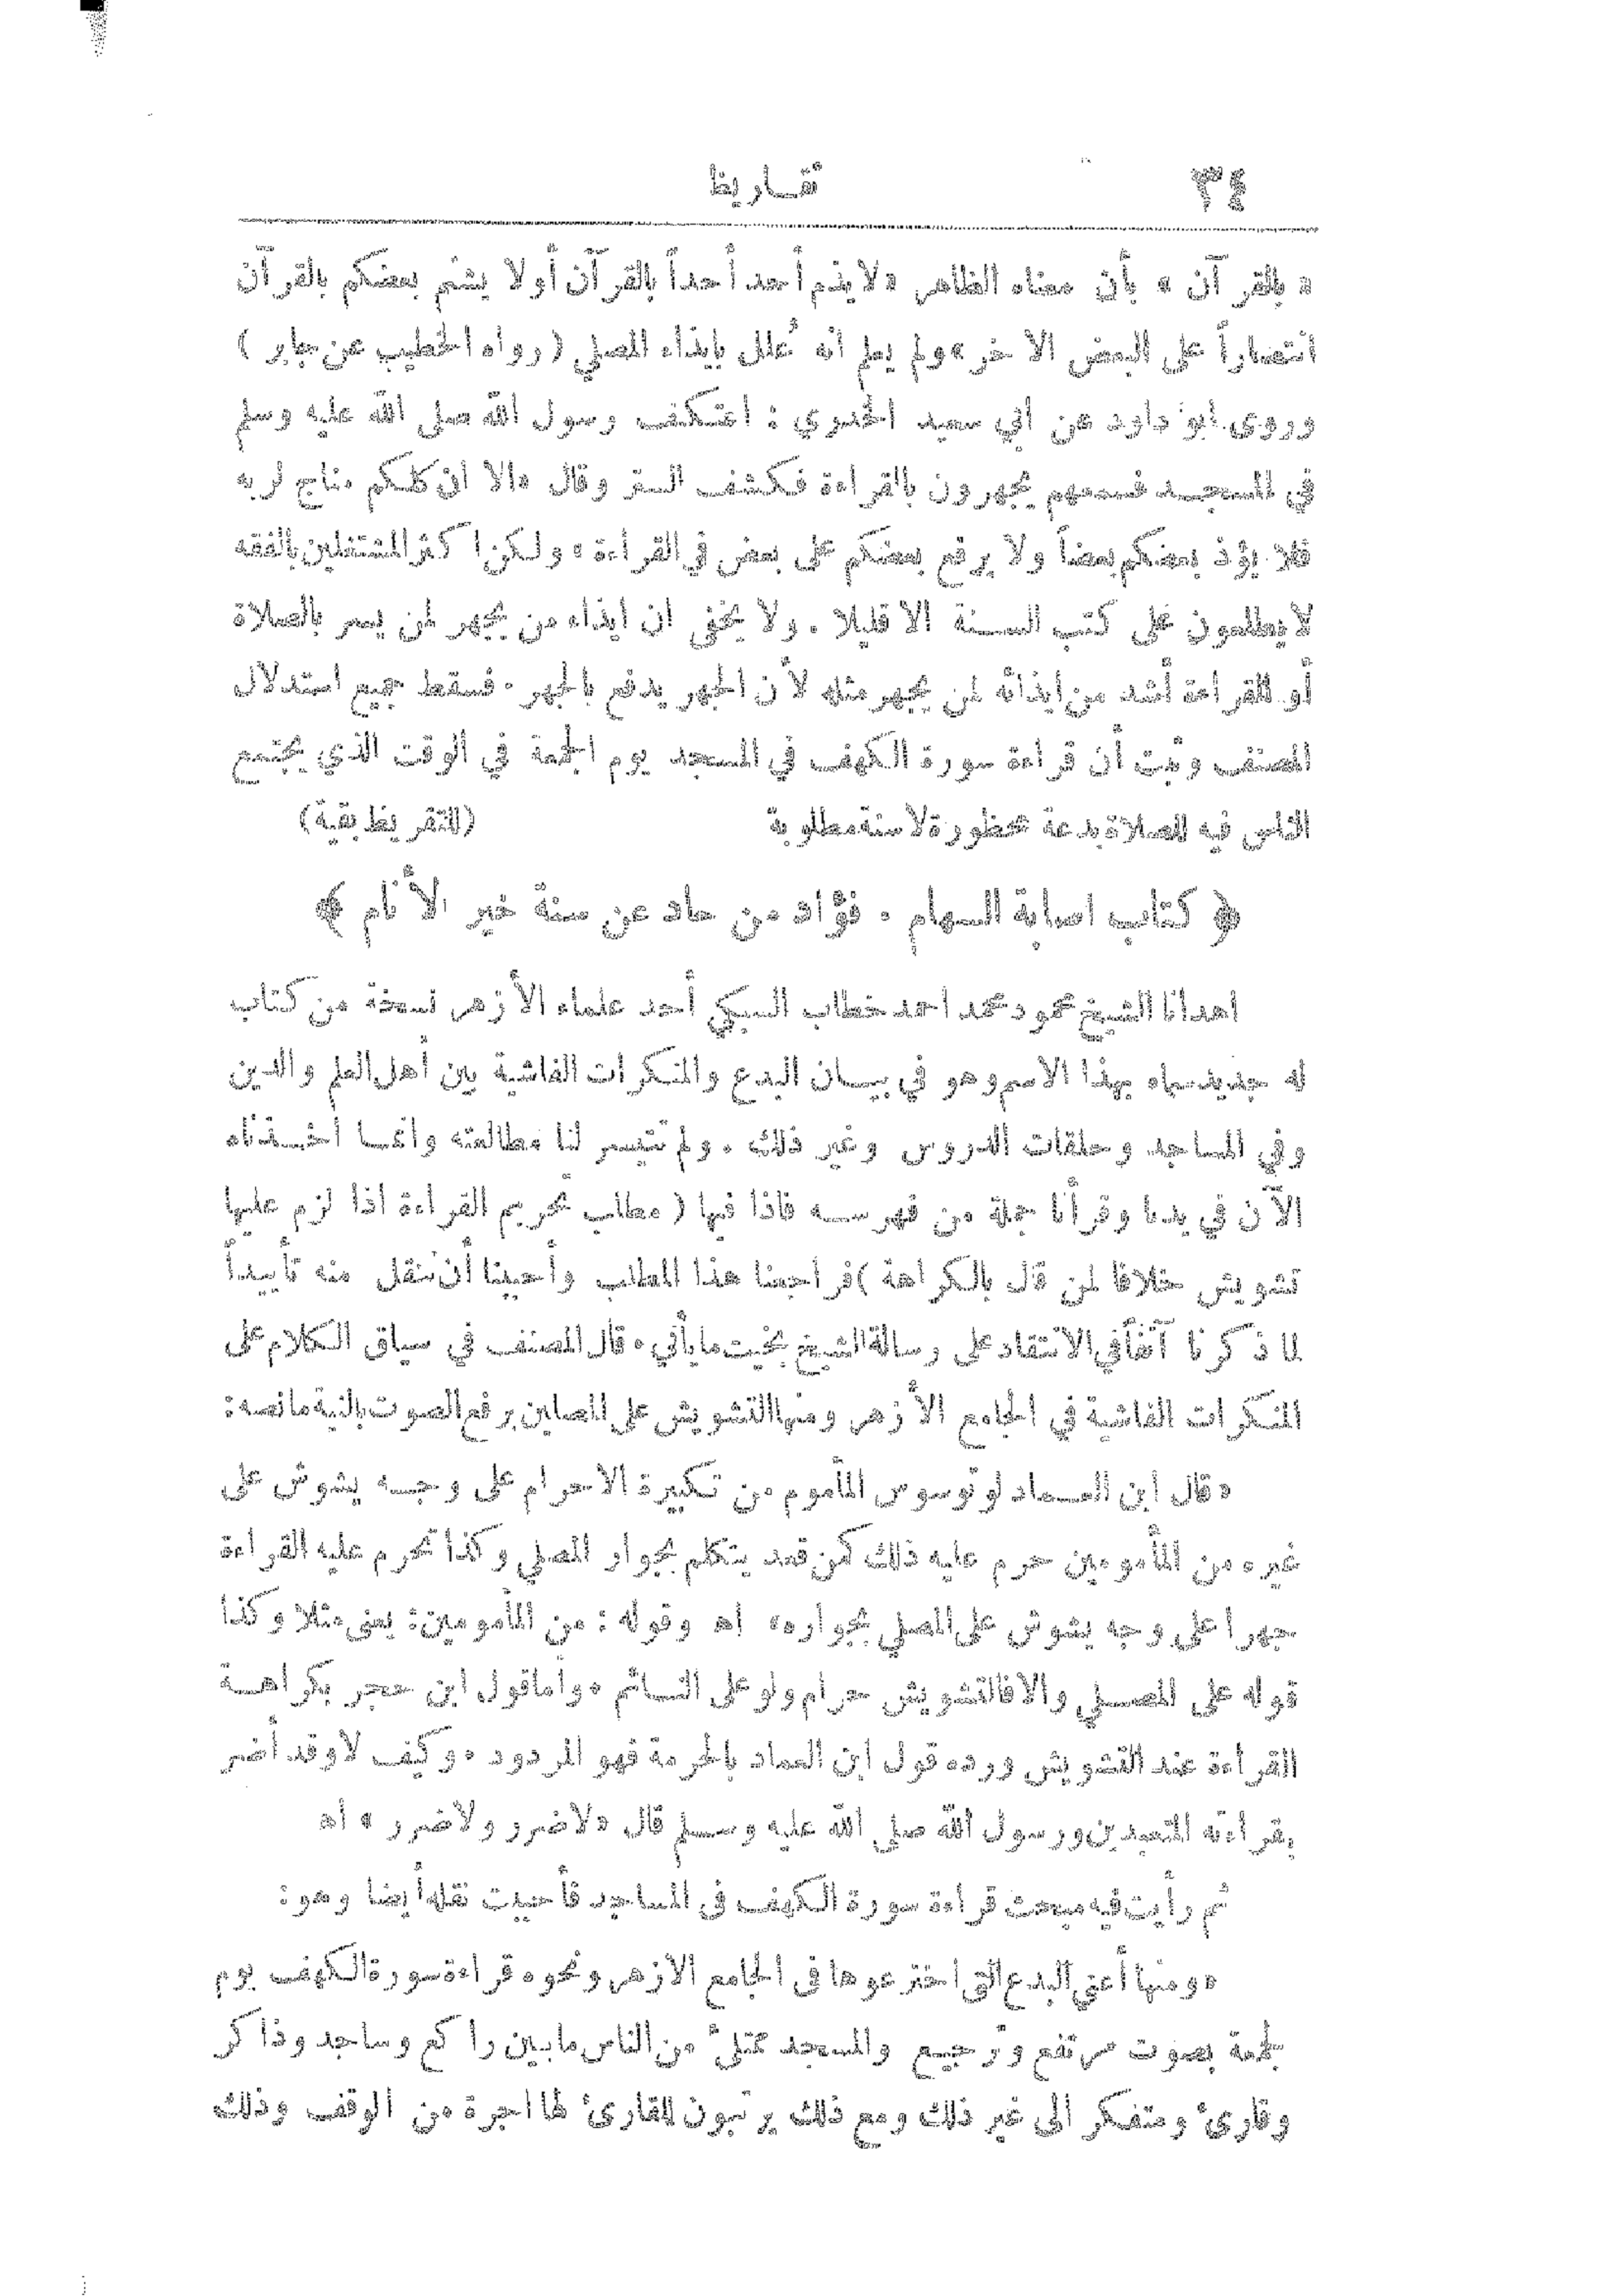 ٣٤
تقاريظ
« بالقرآن » بأن معناه الظاهر «لا يذم أحد أحداً بالقرآن أولا يشتم بعضكم بالقرآن
انتصاراً على البعض الاخر» ولم يعلم انه عُلل بايذاء المصلي (رواه الخطيب عن جابر )
وروى ابو داود عن ابي سعيد الخدري : اعتكف رسول الله صلى الله عليه وسلم
في المسجد فسمعهم يجهرون بالقراءة فكشف الستر وقال «الا ان كلكم مناج لربه
فلا يؤذ بعضكم بعضاً ولا يرفع بعضكم على بعض في القراءة » ولكن اكثر المشتغلين بالفقه
لا يطلعون على كتب السنة الا قليلا . ولا يخفى ان ايذاء من يجهر لمن يسر بالصلاة
أو للقراءة أشد من ايذائه لمن يجهر مثله لأن الجهر يدفع بالجهر . فسقط جميع استدلال
المصنف وثبت أن قراءة سورة الكهف في المسجد يوم الجمعة في الوقت الذي يجتمع
الناس فيه للصلاة بدعة محظورة لا سنة مطلوبة (للتقريظ بقية)
﴿ كتاب اصابة السهام . فؤاد من حاد عن سنة خير الأنام ﴾
اهدانا الشيخ محمود محمد احمد خطاب السبكي أحد علماء الأزهر نسخة من كتاب
له جديد سماه بهذا الاسم وهو في بيان البدع والمنكرات الفاشية بين أهل العلم والدين
وفي المساجد وحلقات الدروس وغير ذلك . ولم تتيسر لنا مطالعته وانما اخذناه
الآن في يدنا وقرأنا جملة من فهرسه فاذا فيها ( مطلب تحريم القراءة اذا لزم عليها
تشويش خلافا لمن قال بالكراهة )فراجعنا هذا المطلب وأحببنا أن ننقل منه تأييداً
لما ذكرنا آنفاً في الانتقاد على رسالة الشيخ بخيت ما يأتي . قال المصنف في سياق الكلام على
المنكرات الفاشية في الجامع الأزهر ومنها التشويش على المصلين برفع الصوت بالنية ما نصه:
«قال ابن العماد لو توسوس المأموم من تكبيرة الاحرام على وجه يشوش على
غيره من المأمومين حرم عليه ذلك كمن قعد يتكلم بجوار المصلي وكذا تحرم عليه القراءة
جهرا على وجه يشوش على المصلي بجواره» اه وقوله : من المأمومين: يعنى مثلا وكذا
قوله على المصلي والا فالتشويش حرام ولو على النائم . وأما قول ابن حجر بكراهة
القراءة عند التشويش ورده قول ابن العماد بالحرمة فهو المردود . وكيف لا وقد أضر
بقراءته المتعبدين ورسول الله صلى الله عليه وسلم قال «لا ضرر ولا ضرر » اه
ثم رأيت فيه مبحث قراءة سورة الكهف فى المساجد فأحببت نقله أيضا وهو:
«ومنها أعني البدع التي اخترعوها فى الجامع الازهر ونحوه قراءة سورة الكهف يوم
لجمعة بصوت مرتفع وترجيع والمسجد ممتلئ من الناس ما بين راكع وساجد وذاكر
وقارئ ومتفكر الى غير ذلك ومع ذلك يرتبون للقارئ لها اجرة من الوقف وذلك